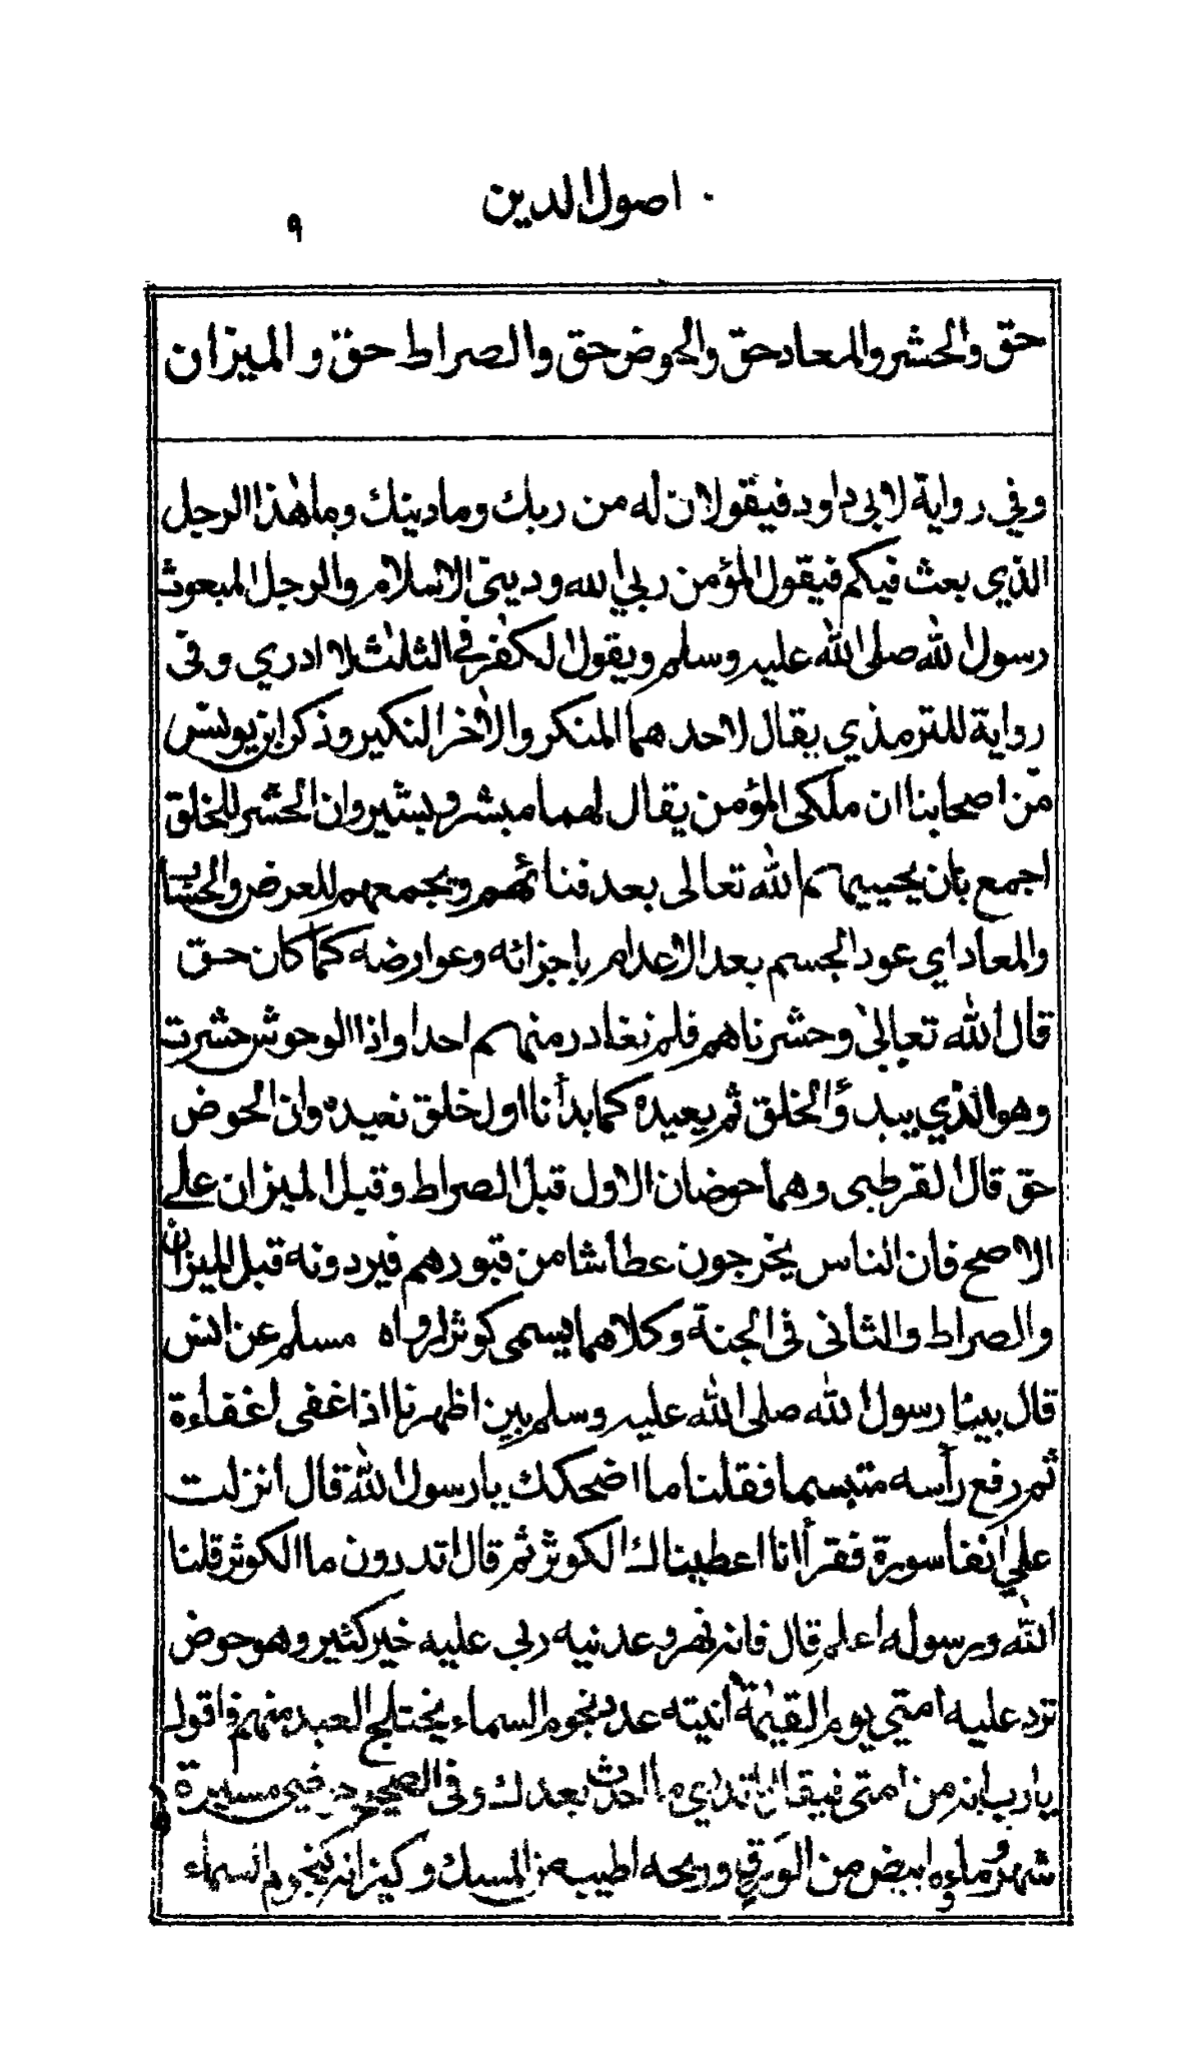 اصول الدين
٩
حق والحشر والمعاد حق والحوض حق والصراط حق والميزان
وفي رواية لابي داود فيقولان له من ربك وما دينك وما هذا الرجل
الذي بعث فيكم فيقول المؤمن ربي الله وديني الاسلام والرجل المبعوث
رسول الله صلى الله عليه وسلم ويقول الكفر في الثلث لا ادري وفي
رواية للترمذي يقال لاحدهما المنكر والاخر النكير وذكر ابن يونس
من اصحابنا ان ملكي المؤمن يقال لهما مبشر وبشير وان الحشر للخلق
اجمع بان يحييهم الله تعالى بعد فنائهم ويجمعهم للعرض والحساب
والمعاد اي عود الجسم بعد الاعدام باجزائه وعوارضه كما كان حق
قال الله تعالى وحشرناهم فلم نغادر منهم احدا واذا الوحوش حشرت
وهو الذي يبدؤ الخلق ثم يعيده كما بدأنا اول خلق نعيده وان الحوض
حق قال القرطبي وهما حوضان الاول قبل الصراط وقبل الميزان على
الاصح فان الناس يخرجون عطاشا من قبورهم فيردونه قبل الميزان
والصراط والثاني في الجنة وكلاهما يسمى كوثرا رواه مسلم عن انس
قال بينا رسول الله صلى الله عليه وسلم بين اظهرنا اذ اغفى اغفاءة
ثم رفع رأسه متبسما فقلنا ما اضحكك يا رسول الله قال انزلت
علي آنفا سورة فقرأ انا اعطيناك الكوثر ثم قال اتدرون ما الكوثر قلنا
الله ورسوله اعلم قال فانه نهر وعدنيه ربي عليه خير كثير وهو حوض
ترد عليه امتي يوم القيمة آنيته عدد نجوم السماء يختلج العبد منهم فاقول
يا رب انه من امتى فيقال ما تدري ما احدث بعدك وفى الصحيح حوضي مسيرة
شهر وماؤه ابيض من الورق وريحه اطيب من المسك وكيزانه كنجوم السماء